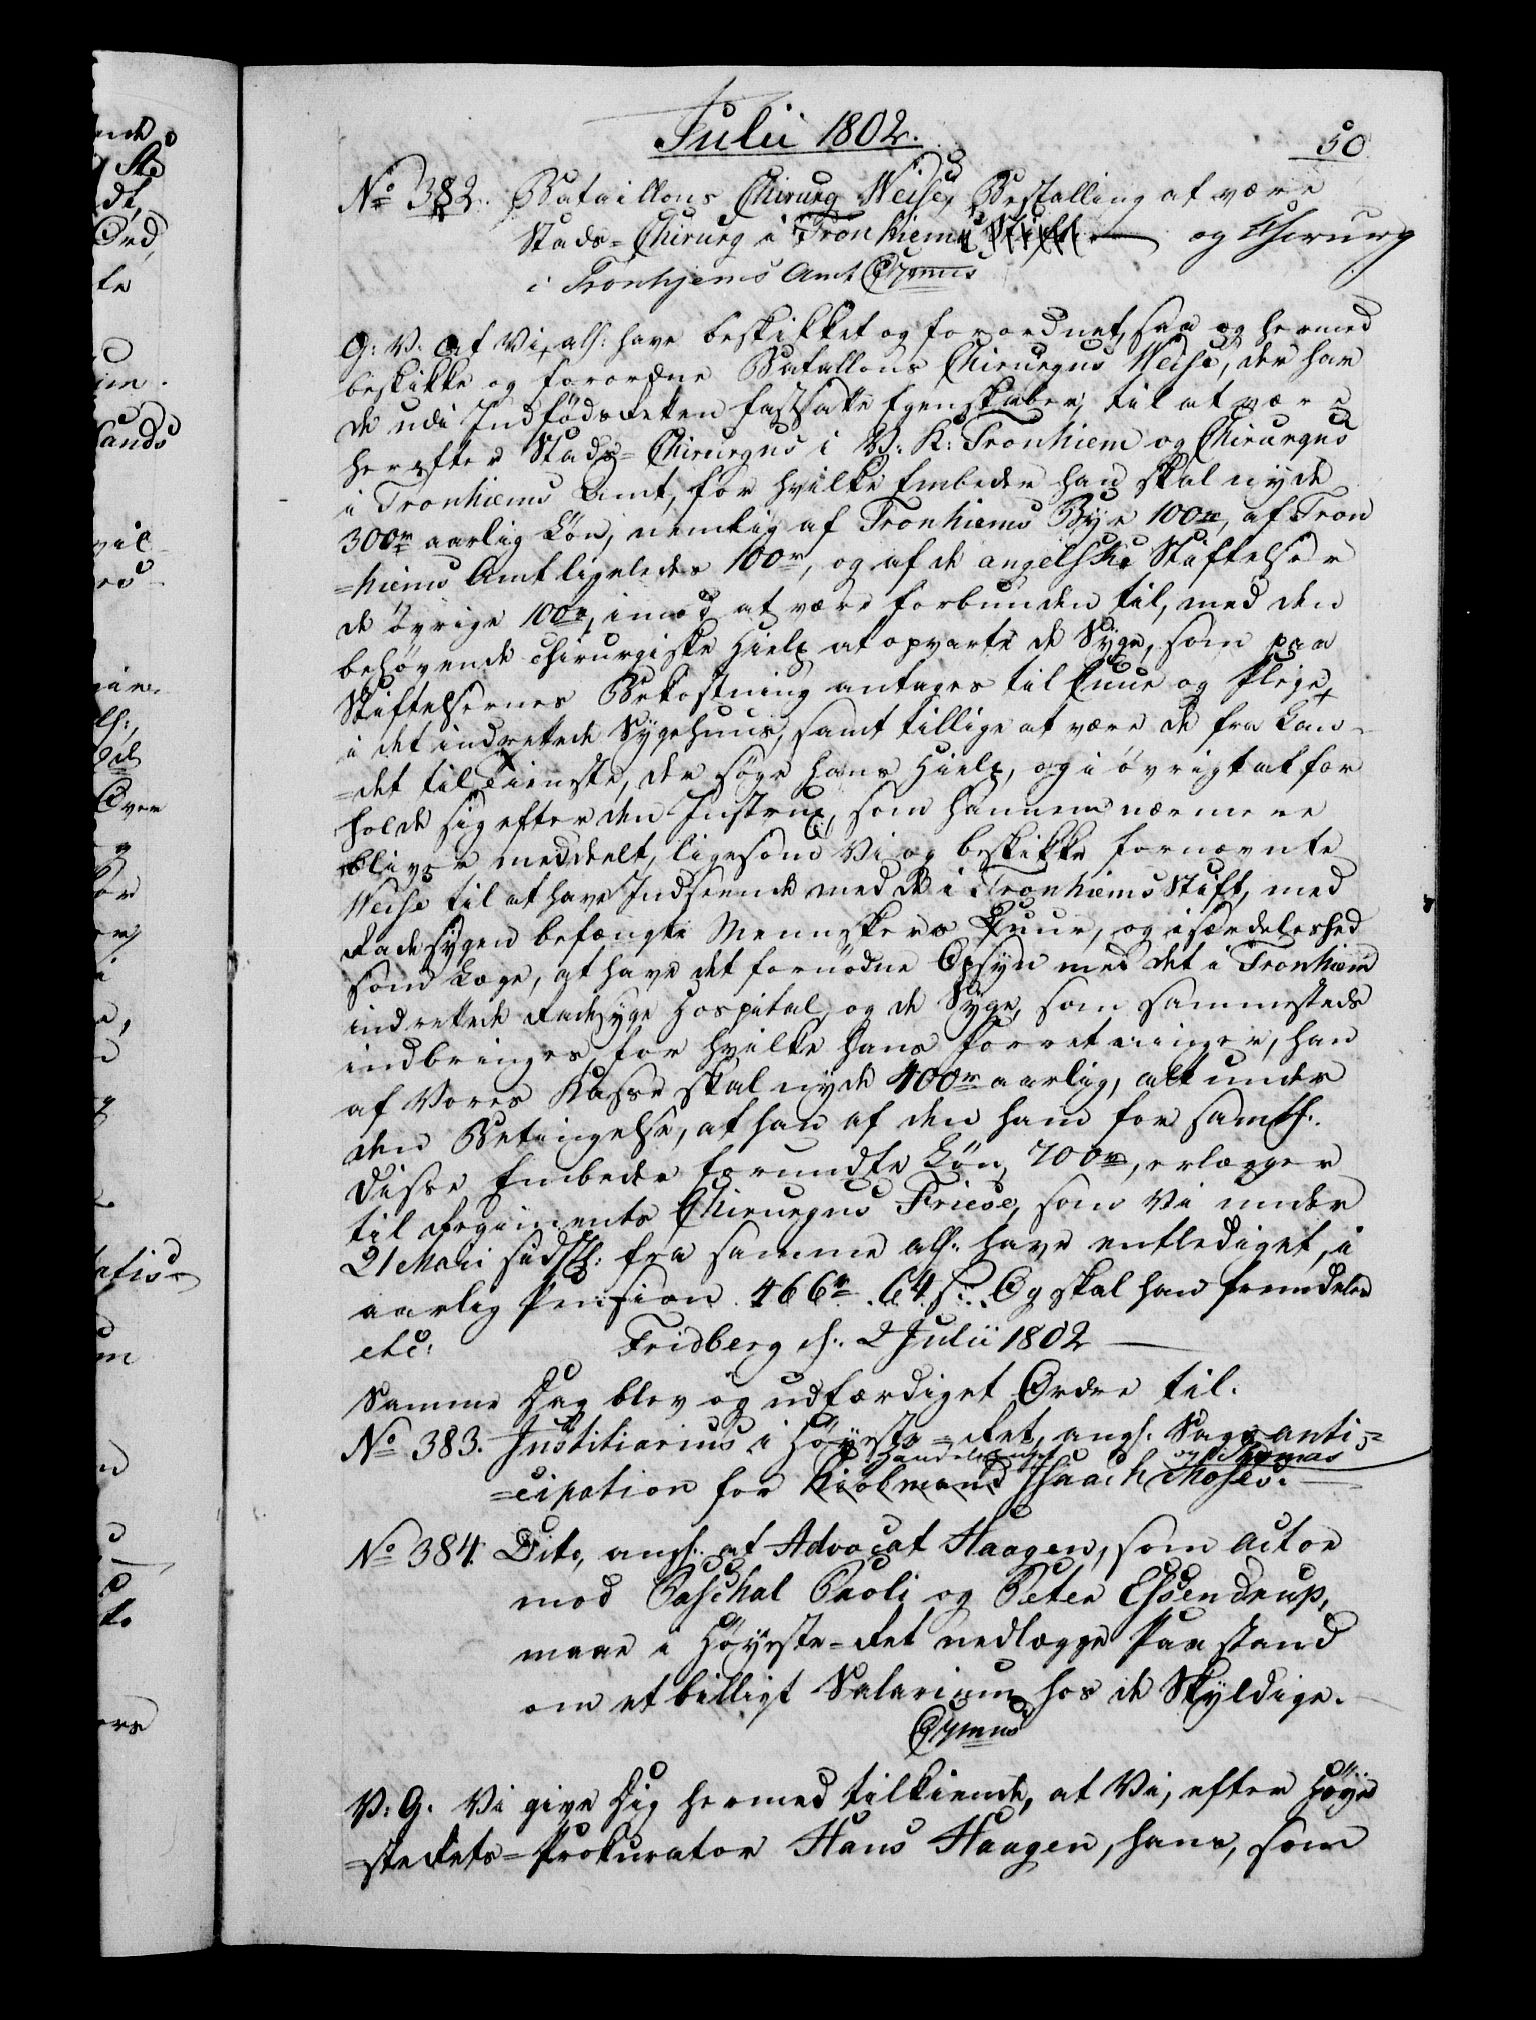 Julii 1802.
50
No 382. Bataillons Chirurg Weise, Bestalling at være
Stads=Chirurg i Tronhiem og Chirurg
i Tronhjems Amt
G: V: At Vi, alf: have beskikket og forordnet, saa og hermed
beskikke og forordne Batallons Chirurgus Weise, der har
de udi Indfødsretten fastsatte Egenskaber, til at være
herefter Stads=Chirurgus i V: K: Tronhiem og Chirurgus
i Tronhiems Amt, for hvilke Embeder han skal nyde
300rd aarlig Løn, nemlig af Tronhiems Bye 100rd, af Tron
=hiems Amt ligeledes 100rd, og af de angelske Stiftelser
de øvrige 100rd, imod at være forbunden til, med den
behøvende chirurgiske Hielp at opvarte de Syge, som paa
Stiftelsernes Bekostning antages til Cuur og Pleje,
i det indrettede Sygehuus, samt tillige at være de fra Lan-
=det til Tieneste, der søge hans Hielp, og i øvrigt at for
holde sig efter den Instrux, som hannem nærmere
bliver meddeelt, ligesom Vi og beskikke fornævnte
Weise til at have Indseende med de i Tronhiems Stift, med
Radesygen befængte Menneskers Cuur, og isærdeleshed
som Læge, at have det fornødne Opsyn med det i Tronhiem
indrettede Radesyge Hospital, og de Syge, som sammesteds
indbringes, for hvilke hans Forretninger, han
af Vores Kasse skal nyde 400rd aarlig, alt under
den Betingelse, at han af den ham for samtl:
disse Embeder forundte Løn, 700rd, erlægger
til Regiments Chirurgus Friese, som Vi under
21 Maii sidstl: fra samme alf: have entlediget, i
aarlig Pension 466rd 64 s: Og skal han fremdeles
etc: Fridberg d: 2 Julii 1802
Samme Dag blev og udfærdiget Ordre til.
No 383. Justitiarius i Høyeste=Ret, angl: Sags anti=
Handelsmand og Thomas
=cipation for Kiøbmand Isaach Moses.
No 384. Dito, angl: at Advocat Haagen, som Actor
mod Paschal Paoli og Peter Essendrup,
maae i Høyeste=Ret nedlægge Paastand
om et billigt Salarium hos de Skyldige.
V: G. Vi give Dig hermed tilkiende, at Vi, efter Høye
=sterets=Prokurator Hans Haagen, hans, som